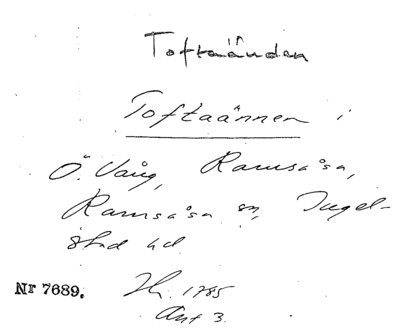 Toftaänden
Toftaännen i
Ö. Vång, Ramsåsa,
Ramsåsa sn, Ingel-
stad hd
Nr 7689. 1785
Akt 3.